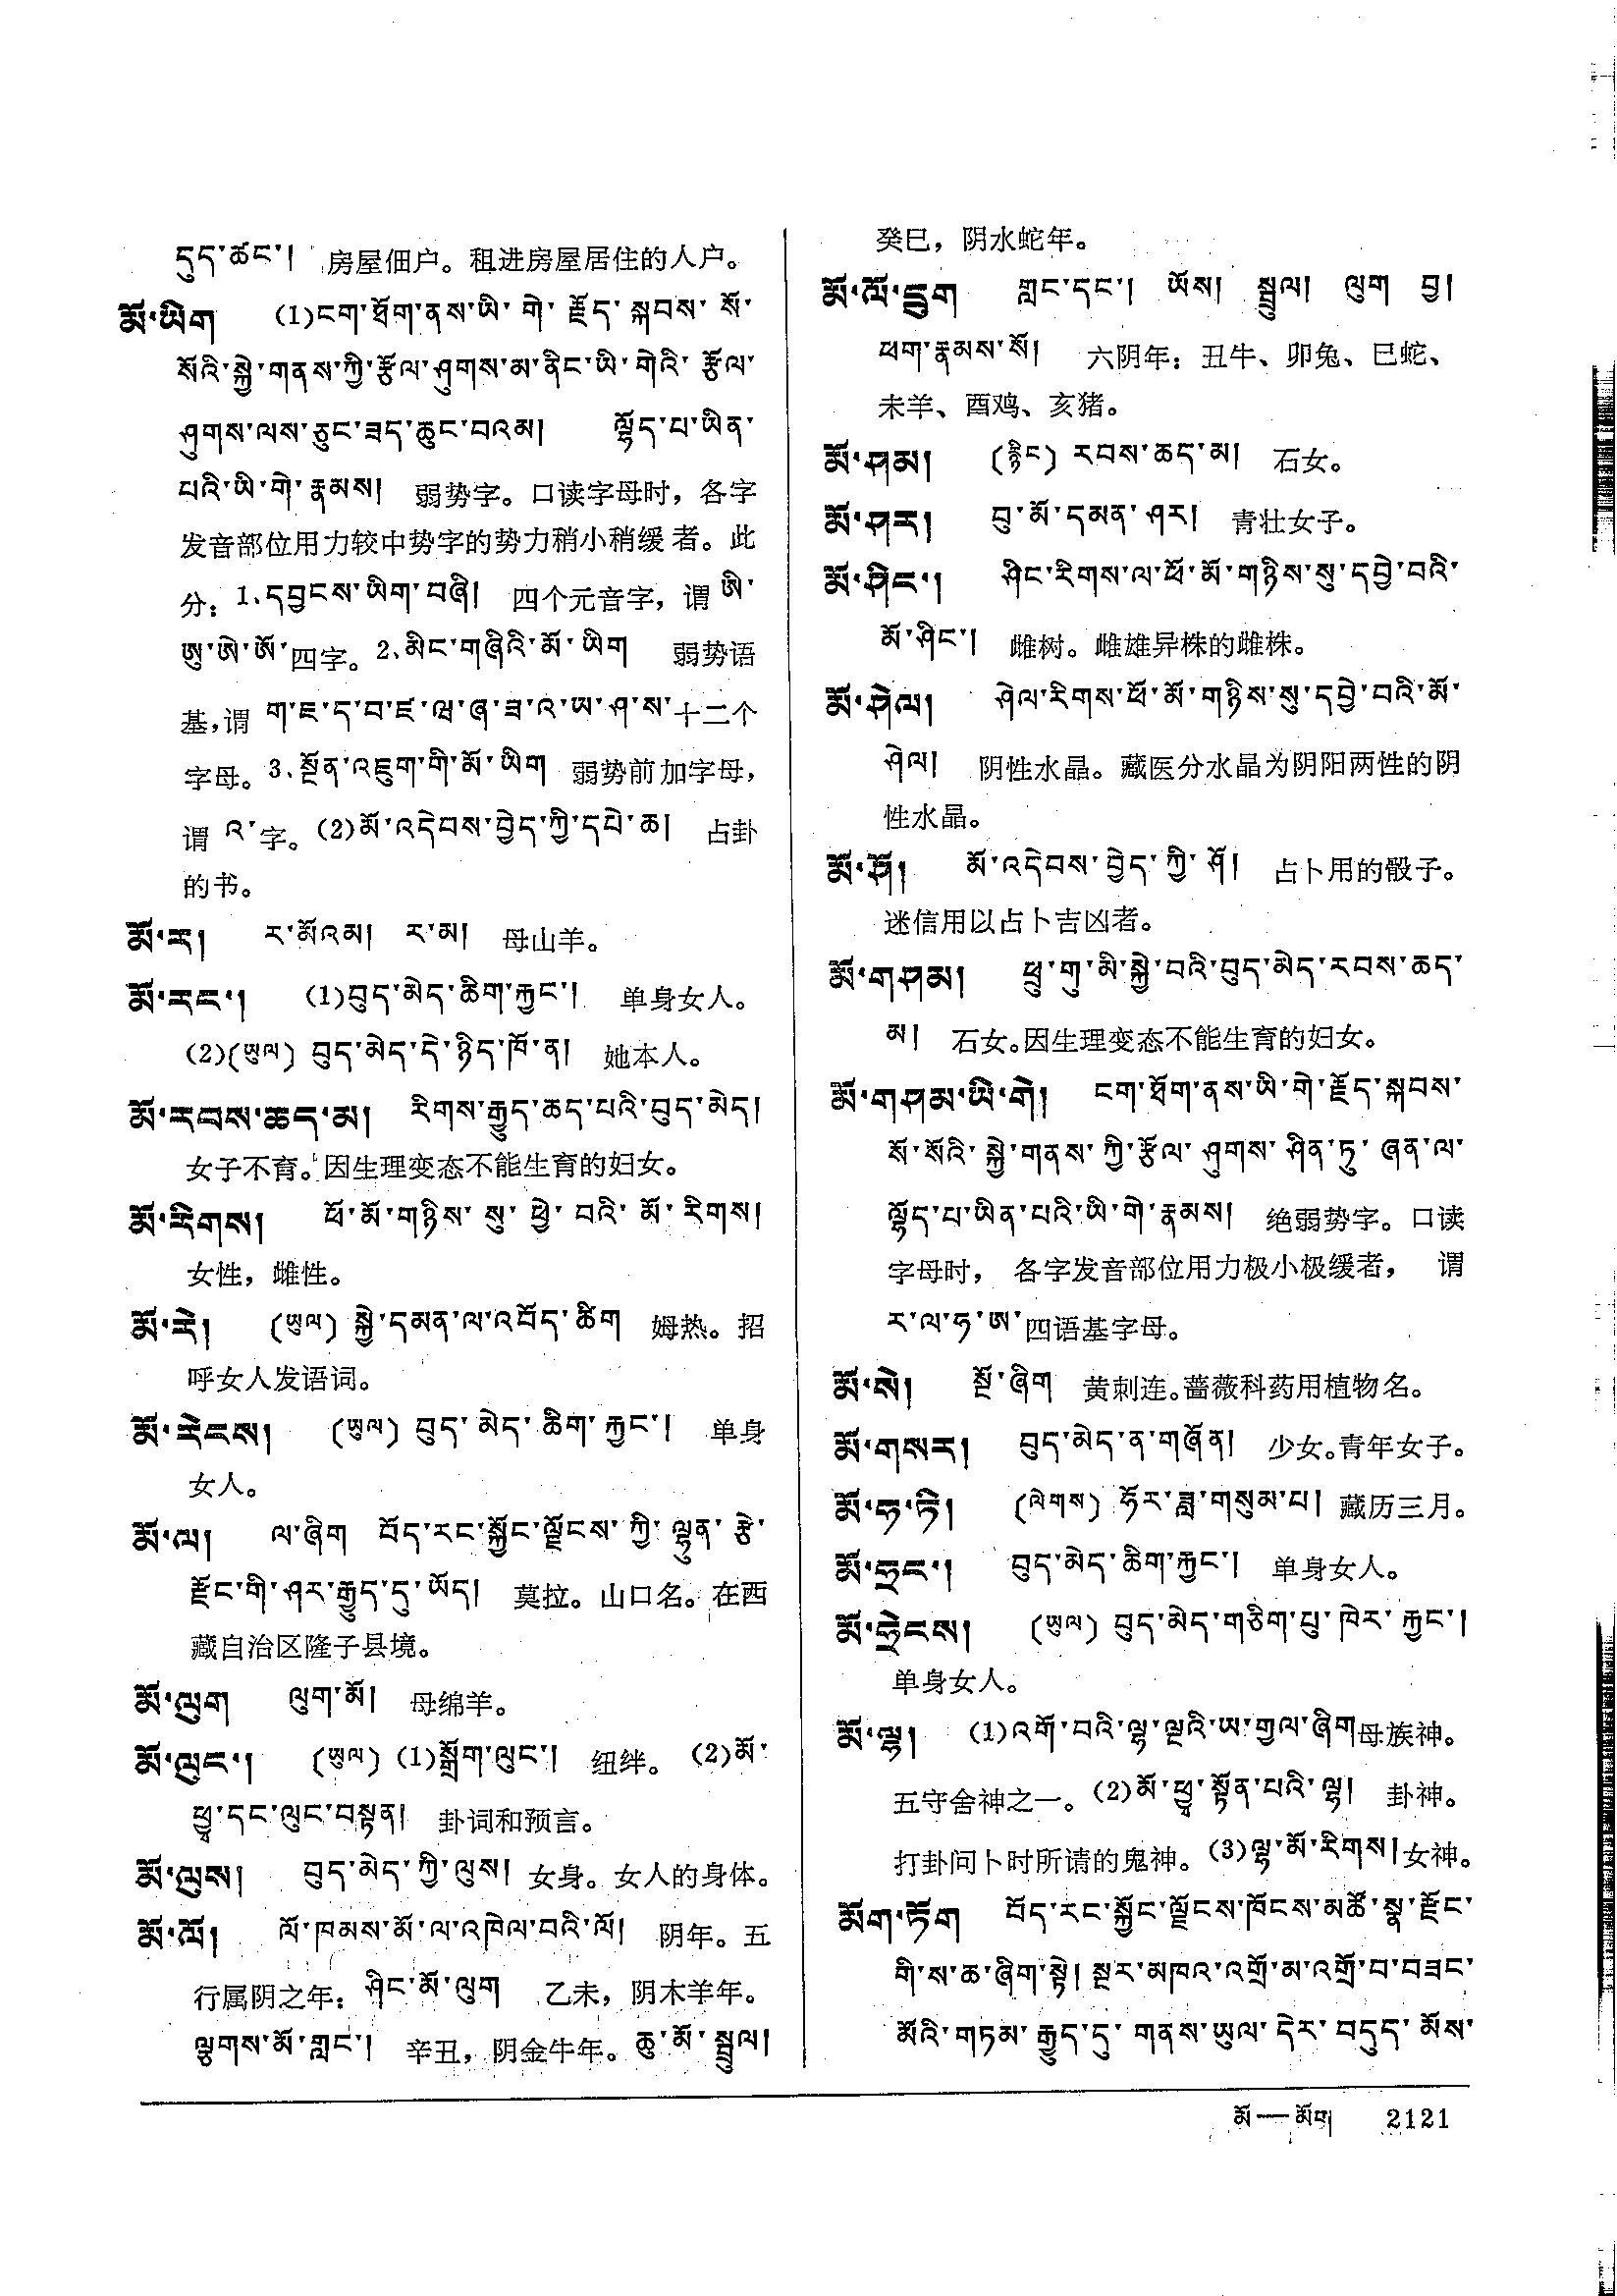 དུད་ཚང་། 房屋佃户。租进房屋居住的人户。
མོ་ཡིག (1)ངག་ཐོག་ནས་ཡི་གེ་རྗོད་སྐབས་སོ་
སོའི་སྐྱེ་གནས་ཀྱི་རྩོལ་ཤུགས་མ་ནིང་ཡི་གེའི་རྩོལ་
ཤུགས་ལས་ཅུང་ཟད་ཆུང་བའམ། ལྷོད་པ་ཡིན་
པའི་ཡི་གེ་རྣམས། 弱势字。口读字母时，各字
发音部位用力较中势字的势力稍小稍缓者。此
分：1.དབྱངས་ཡིག་བཞི། 四个元音字，谓ཨི་
ཨུ་ཨེ་ཨོ་四字。2.མིང་གཞིའི་མོ་ཡིག 弱势语
基，谓 ག་ཇ་ད་བ་ཛ་ཝ་ཞ་ཟ་འ་ཡ་ཤ་ས་十二个
字母。3.སྔོན་འཇུག་གི་མོ་ཡིག 弱势前加字母，
谓 འ་字。(2)མོ་འདེབས་བྱེད་ཀྱི་དཔེ་ཆ། 占卦
的书。
མོ་ར། ར་མོའམ། ར་མ། 母山羊。
མོ་རང་། (1)བུད་མེད་ཆིག་རྐྱང་། 单身女人。
(2)(ཡུལ) བུད་མེད་དེ་ཉིད་ཁོ་ན། 她本人。
མོ་རབས་ཆད་མ། རིགས་རྒྱུད་ཆད་པའི་བུད་མེད།
女子不育。因生理变态不能生育的妇女。
མོ་རིགས། ཕོ་མོ་གཉིས་སུ་ཕྱེ་བའི་མོ་རིགས།
女性，雌性。
མོ་རེ། (ཡུལ) སྐྱེ་དམན་ལ་འབོད་ཚིག 姆热。招
呼女人发语词。
མོ་རེངས། (ཡུལ) བུད་མེད་ཆིག་རྐྱང་། 单身
女人。
མོ་ལ། ལ་ཞིག བོད་རང་སྐྱོང་ལྗོངས་ཀྱི་ལྷུན་རྩེ་
རྫོང་གི་ཤར་རྒྱུད་དུ་ཡོད། 莫拉。山口名。在西
藏自治区隆子县境。
མོ་ལུག ལུག་མོ། 母绵羊。
མོ་ལུང་། (ཡུལ) (1)སྒྲོག་ལུང་། 纽绊。(2)མོ་
ཕྱྭ་དང་ལུང་བསྟན། 卦词和预言。
མོ་ལུས། བུད་མེད་ཀྱི་ལུས། 女身。女人的身体。
མོ་ལོ། ལོ་ཁམས་མོ་ལ་འཁེལ་བའི་ལོ། 阴年。五
行属阴之年：ཤིང་མོ་ལུག 乙未，阴木羊年。
ལྕགས་མོ་གླང་། 辛丑，阴金牛年。ཆུ་མོ་སྦྲུལ།
癸巳，阴水蛇年。
མོ་ལོ་དྲུག གླང་དང་། ཡོས། སྦྲུལ། ལུག བྱ།
ཕག་རྣམས་སོ། 六阴年；丑牛、卯兔、巳蛇、
未羊、酉鸡、亥猪。
མོ་ཤམ། (རྙིང) རབས་ཆད་མ། 石女。
མོ་ཤར། བུ་མོ་དམན་ཤར། 青壮女子。
མོ་ཤིང་། ཤིང་རིགས་ལ་ཕོ་མོ་གཉིས་སུ་དབྱེ་བའི་
མོ་ཤིང་། 雌树。雌雄异株的雌株。
མོ་ཤེལ། ཤེལ་རིགས་ཕོ་མོ་གཉིས་སུ་དབྱེ་བའི་མོ་
ཤེལ། 阴性水晶。藏医分水晶为阴阳两性的阴
性水晶。
མོ་ཤོ། མོ་འདེབས་བྱེད་ཀྱི་ཤོ། 占卜用的骰子。
迷信用以占卜吉凶者。
མོ་གཤམ། ཕྲུ་གུ་མི་སྐྱེ་བའི་བུད་མེད་རབས་ཆད་
མ། 石女。因生理变态不能生育的妇女。
མོ་གཤམ་ཡི་གེ། ངག་ཐོག་ནས་ཡི་གེ་རྗོད་སྐབས་
སོ་སོའི་སྐྱེ་གནས་ཀྱི་རྩོལ་ཤུགས་ཤིན་ཏུ་ཞན་ལ་
ལྷོད་པ་ཡིན་པའི་ཡི་གེ་རྣམས། 绝弱势字。口读
字母时， 各字发音部位用力极小极缓者， 谓
ར་ལ་ཧ་ཨ་四语基字母。
མོ་སེ། སྔོ་ཞིག 黄刺连。蔷薇科药用植物名。
མོ་གསར། བུད་མེད་ན་གཞོན། 少女。青年女子。
མོ་ཧ་ཏི། (ལེགས) ཧོར་ཟླ་གསུམ་པ། 藏历三月。
མོ་ཧྲང་། བུད་མེད་ཆིག་རྐྱང་། 单身女人。
མོ་ཧྲེངས། (ཡུལ) བུད་མེད་གཅིག་པུ་ཁེར་རྐྱང་།
单身女人。
མོ་ལྷ། (1)འགོ་བའི་ལྷ་ལྔའི་ཡ་གྱལ་ཞིག母族神。
五守舍神之一。(2)མོ་ཕྱྭ་སྟོན་པའི་ལྷ། 卦神。
打卦问卜时所请的鬼神。(3)ལྷ་མོ་རིགས། 女神。
མོག་ཏོག བོད་རང་སྐྱོང་ལྗོངས་ཁོངས་མཚོ་སྣ་རྫོང་
གི་ས་ཆ་ཞིག་སྟེ། སྔར་མཁའ་འགྲོ་མ་འགྲོ་བ་བཟང་
མོའི་གཏམ་རྒྱུད་དུ་གནས་ཡུལ་དེར་བདུད་མོས་
མོ—མོག 2121